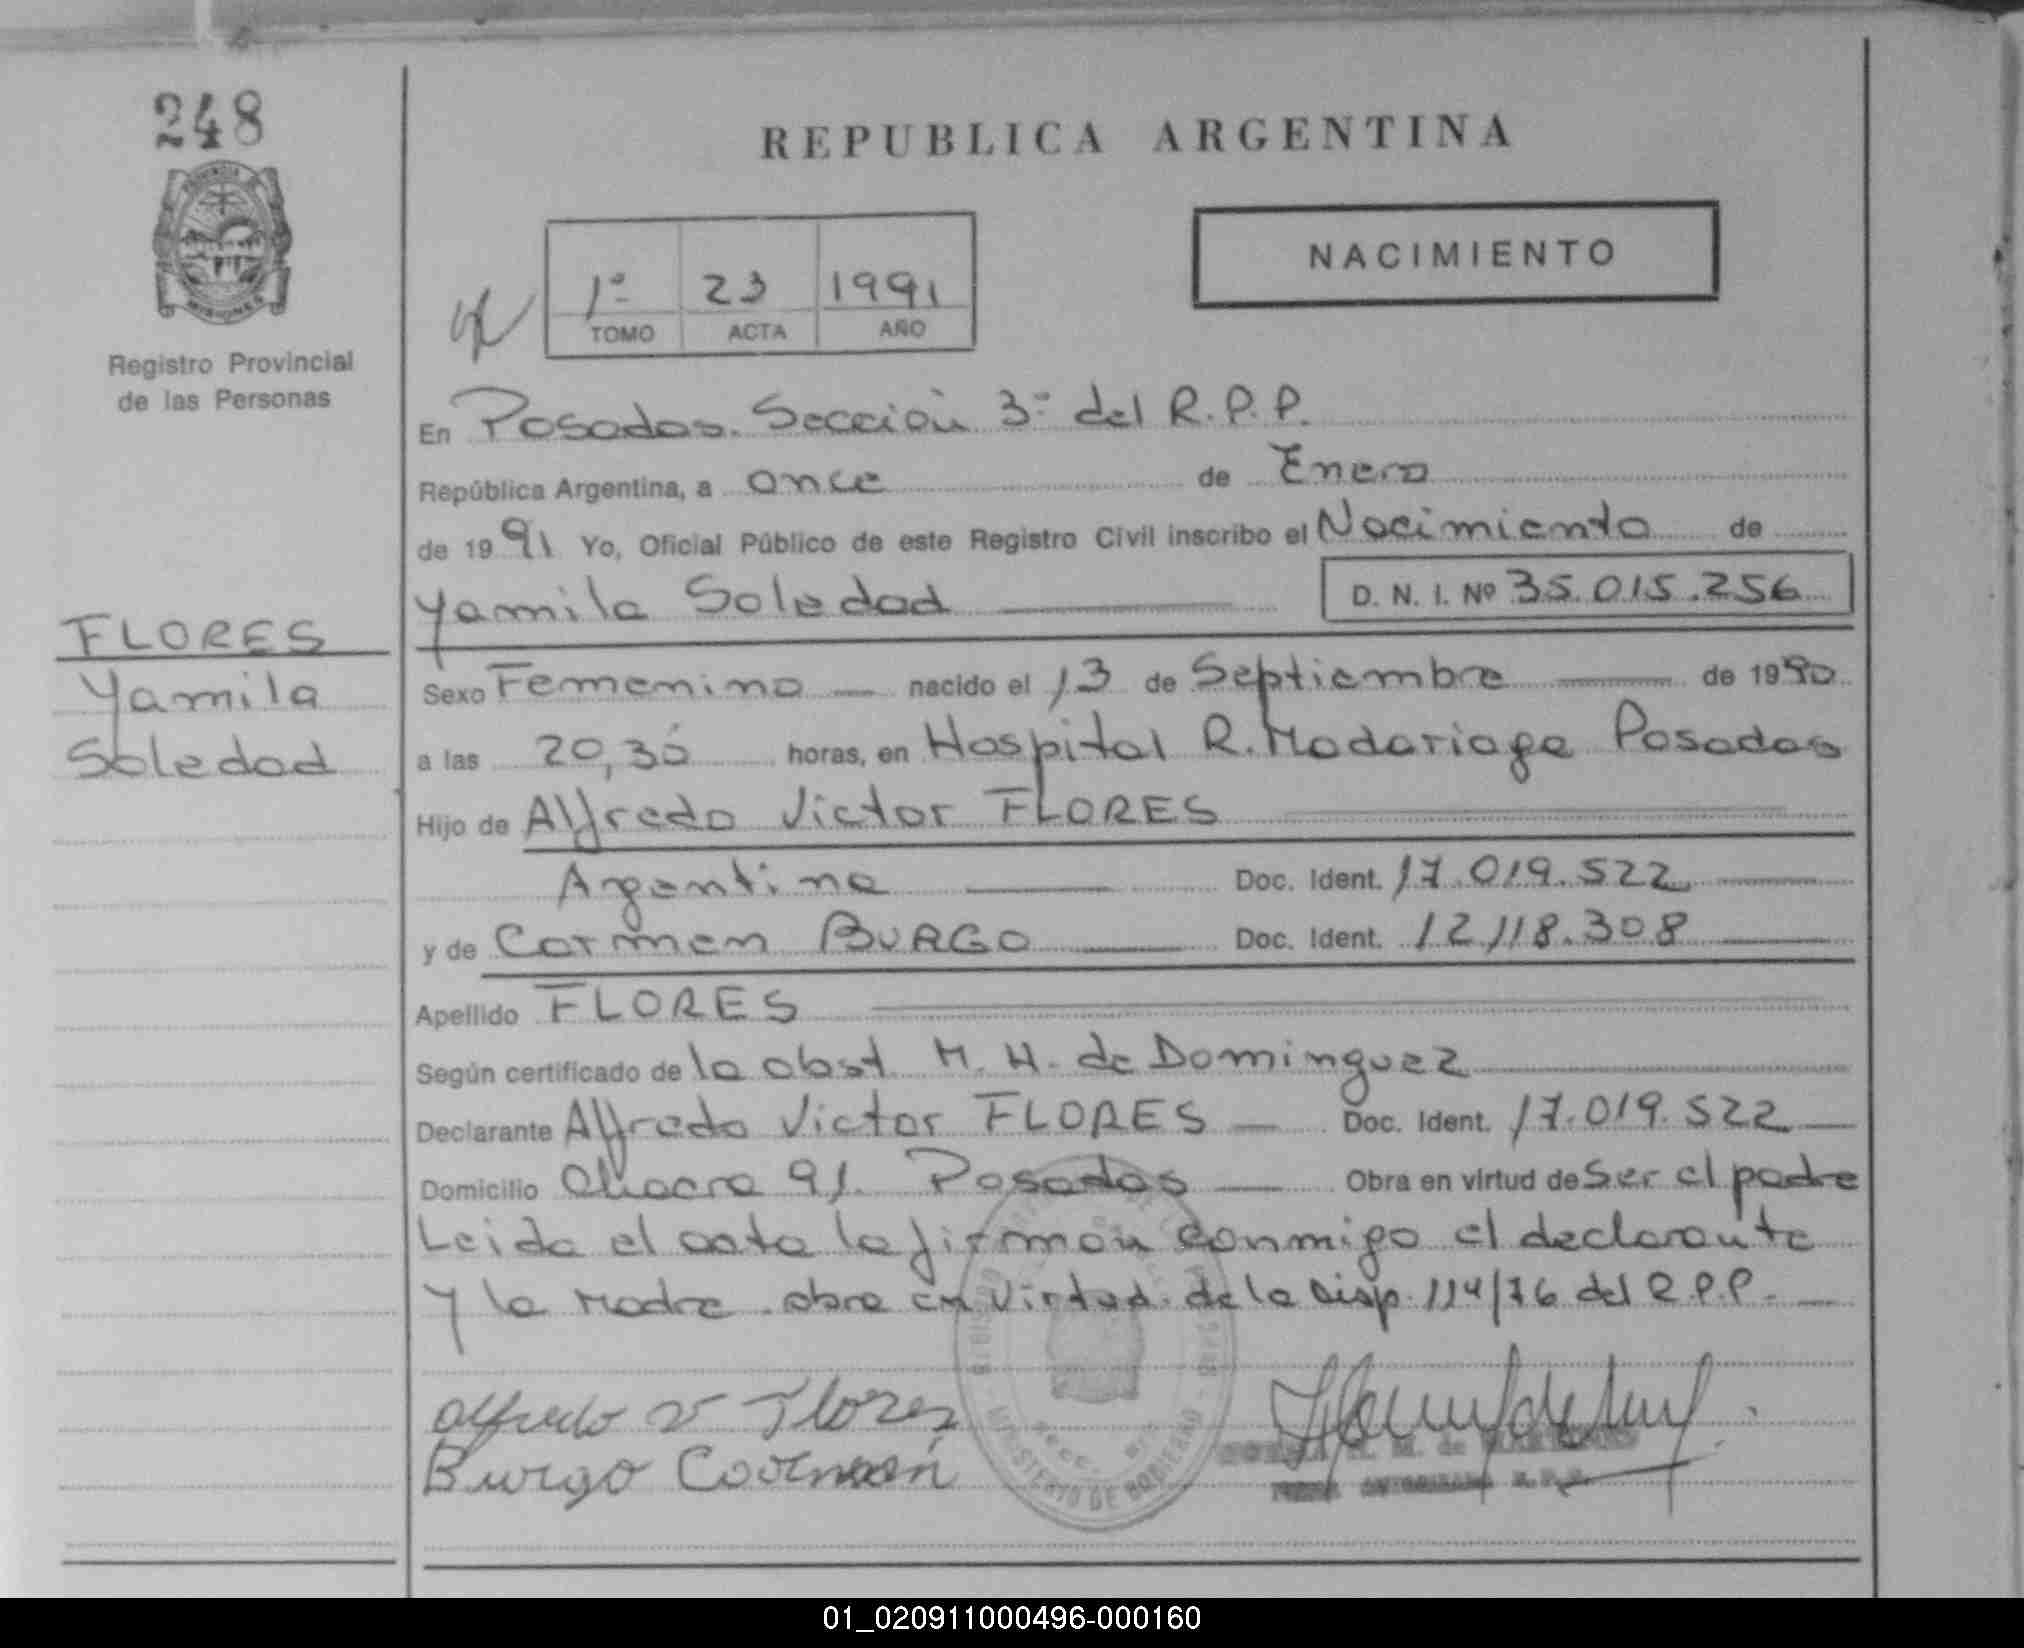 248
REPUBLICA ARGENTINA
NACIMIENTO
1º 23 1991
TOMO ACTA AÑO
PROVINCIA DE
MISIONES
Registro Provincial
de las Personas
En Posadas. Sección 3º del R.P.P.
República Argentina, a once de Enero
de 1991 Yo, Oficial Público de este Registro Civil inscribo el Nacimiento de
Yamila Soledad D. N. I. Nº 35.015.256
FLORES
Yamila
Soledad
Sexo Femenino nacido el 13 de Septiembre de 1990
a las 20,30 horas, en Hospital R. Madariaga Posadas
Hijo de Alfredo Victor FLORES
Argentina Doc. Ident. 17.019.522
y de Carmen BURGO Doc. Ident. 12.118.308
Apellido FLORES
Según certificado de la obst M. H. de Dominguez
Declarante Alfredo Victor FLORES Doc. Ident. 17.019.522
Domicilio Chacra 91. Posadas Obra en virtud de Ser el padre
Leida el acta la firman conmigo el declarante
y la Madre. obra en Virtud. de la Disp. 114/76 del R.P.P.
Alfredo V Flores
Burgo Carmen
MINISTERIO DE GOBIERNO
01_020911000496-000160